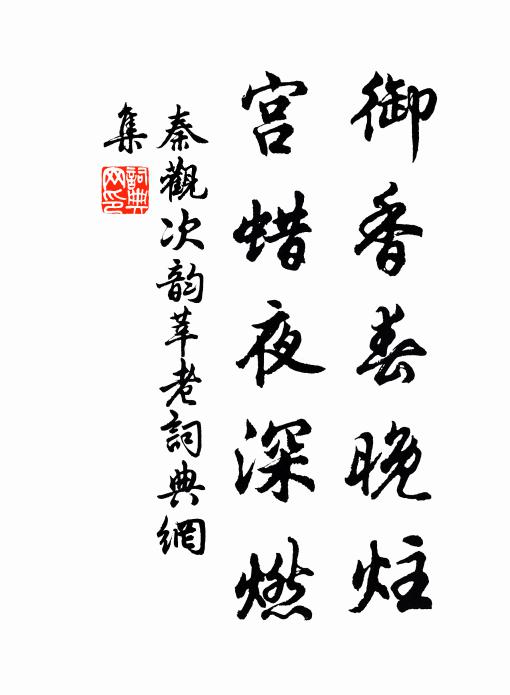 御香春晚炷
宫蜡夜深燃
秦觀次韵莘老詞典網
集
詞典网印